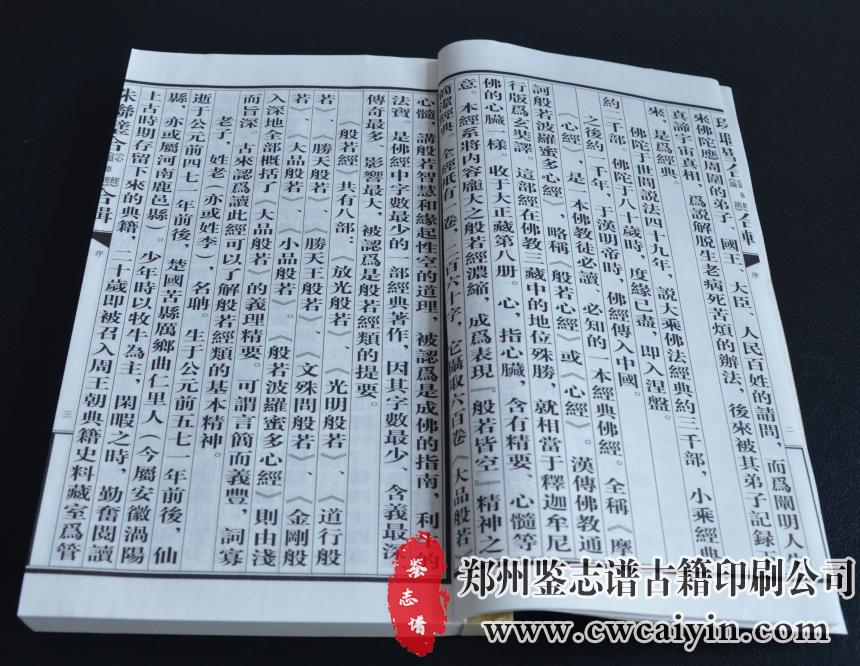 序
二
來佛陀應周圍的弟子、國王、大臣、人民百姓的請問，而爲闡明人生
真諦宇宙真相，爲説解脱生老病死苦煩的辦法，後來被其弟子記録
來，是爲經典。
佛陀于世間説法四十九年，説大乘佛法經典約三千部，小乘經典
約二千部，佛陀于八十歲時，度緣已盡，即入涅盤。
之後約一千年，于漢明帝時，佛經傳入中國。
《心經》，是一本佛教徒必讀、必知的一本經典佛經。全稱《摩
訶般若波羅蜜多心經》，略稱《般若心經》或《心經》。漢傳佛教通
行版爲玄奘譯。這部經在佛教三藏中的地位殊勝，就相當于釋迦牟尼
佛的心臟一樣。收于大正藏第八册。心，指心臟，含有精要、心髓等
意。本經系將内容龐大之般若經濃縮，成爲表現『般若皆空』精神之
簡潔經典。全經衹有一卷，二百六十字，它攝取六百卷《大品般若
心髓，講般若智慧和緣起性空的道理，被認爲是成佛的指南，利
的
法寶，是佛經中字數最少的一部經典著作，因其字數最少、含義最深
傳奇最多、影響最大，被認爲是般若經類的提要。
《般若經》共有八部：《放光般若》、《光明般若》、《道行般
若》、《勝天般若》、《勝天王般若》、《文殊問般若》、《金剛般
若》、《大品般若》、《小品般若》。《般若波羅蜜多心經》則由淺
入深地全部概括了《大品般若》的義理精要。可謂言簡而義豐，詞寡
而旨深。古來認爲讀此經可以了解般若經類的基本精神。
老子，姓老（亦或姓李），名聃。生于公元前五七一年前後，
逝于公元前四七一年前後，楚國苦縣厲鄉曲仁里人（今屬安徽渦陽
縣，亦或屬河南鹿邑縣）。少年時以牧牛為主，閑暇之時，勤奮閲讀
上古時期存留下來的典籍，二十歲即被召入周王朝典籍史料藏室爲管
合輯
序
三
鉴志谱
郑州鉴志谱古籍印刷公司
www.cwcaiyin.com